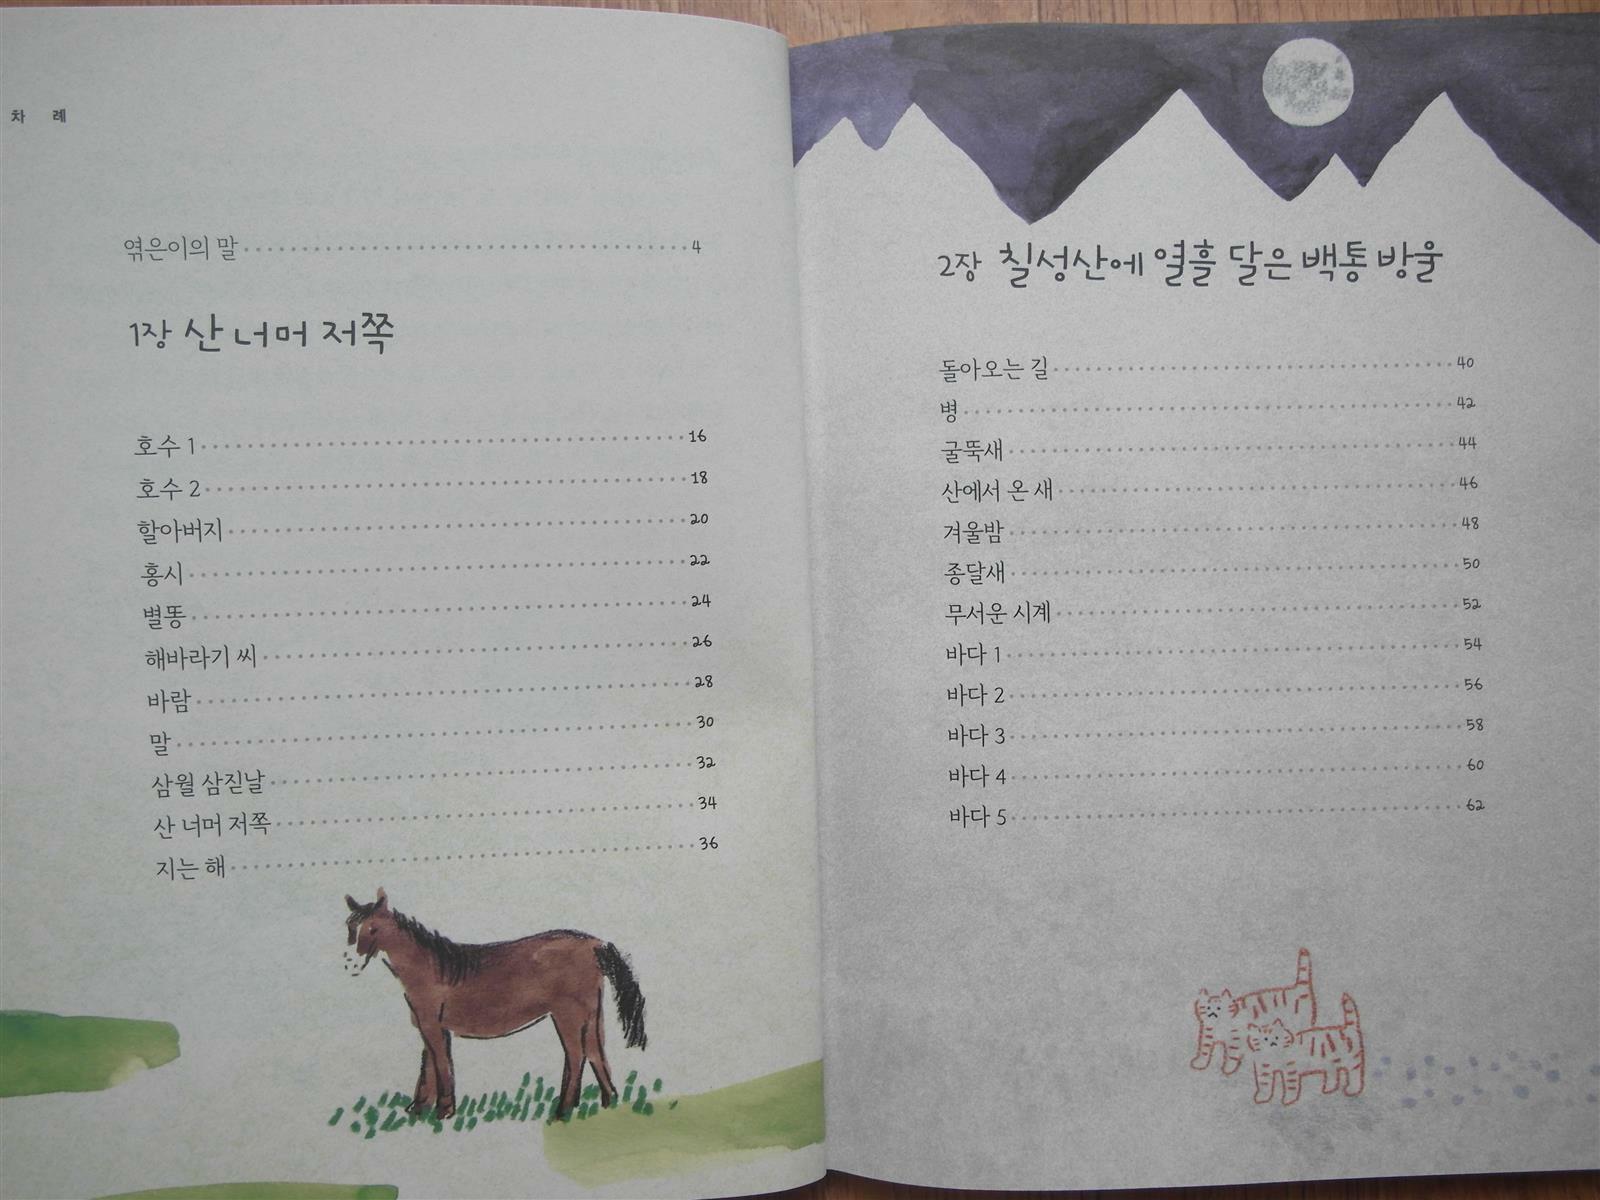 차 례
엮은이의 말 4
1장 산 너머 저쪽
호수 1 16
호수 2 18
할아버지 20
홍시 22
별똥 24
해바라기 씨 26
바람 28
말 30
삼월 삼짇날 32
산 너머 저쪽 34
지는 해 36
2장 칠성산에 열흘 달은 백통 방울
돌아오는 길 40
병 42
굴뚝새 44
산에서 온 새 46
겨울밤 48
종달새 50
무서운 시계 52
바다 1 54
바다 2 56
바다 3 58
바다 4 60
바다 5 62